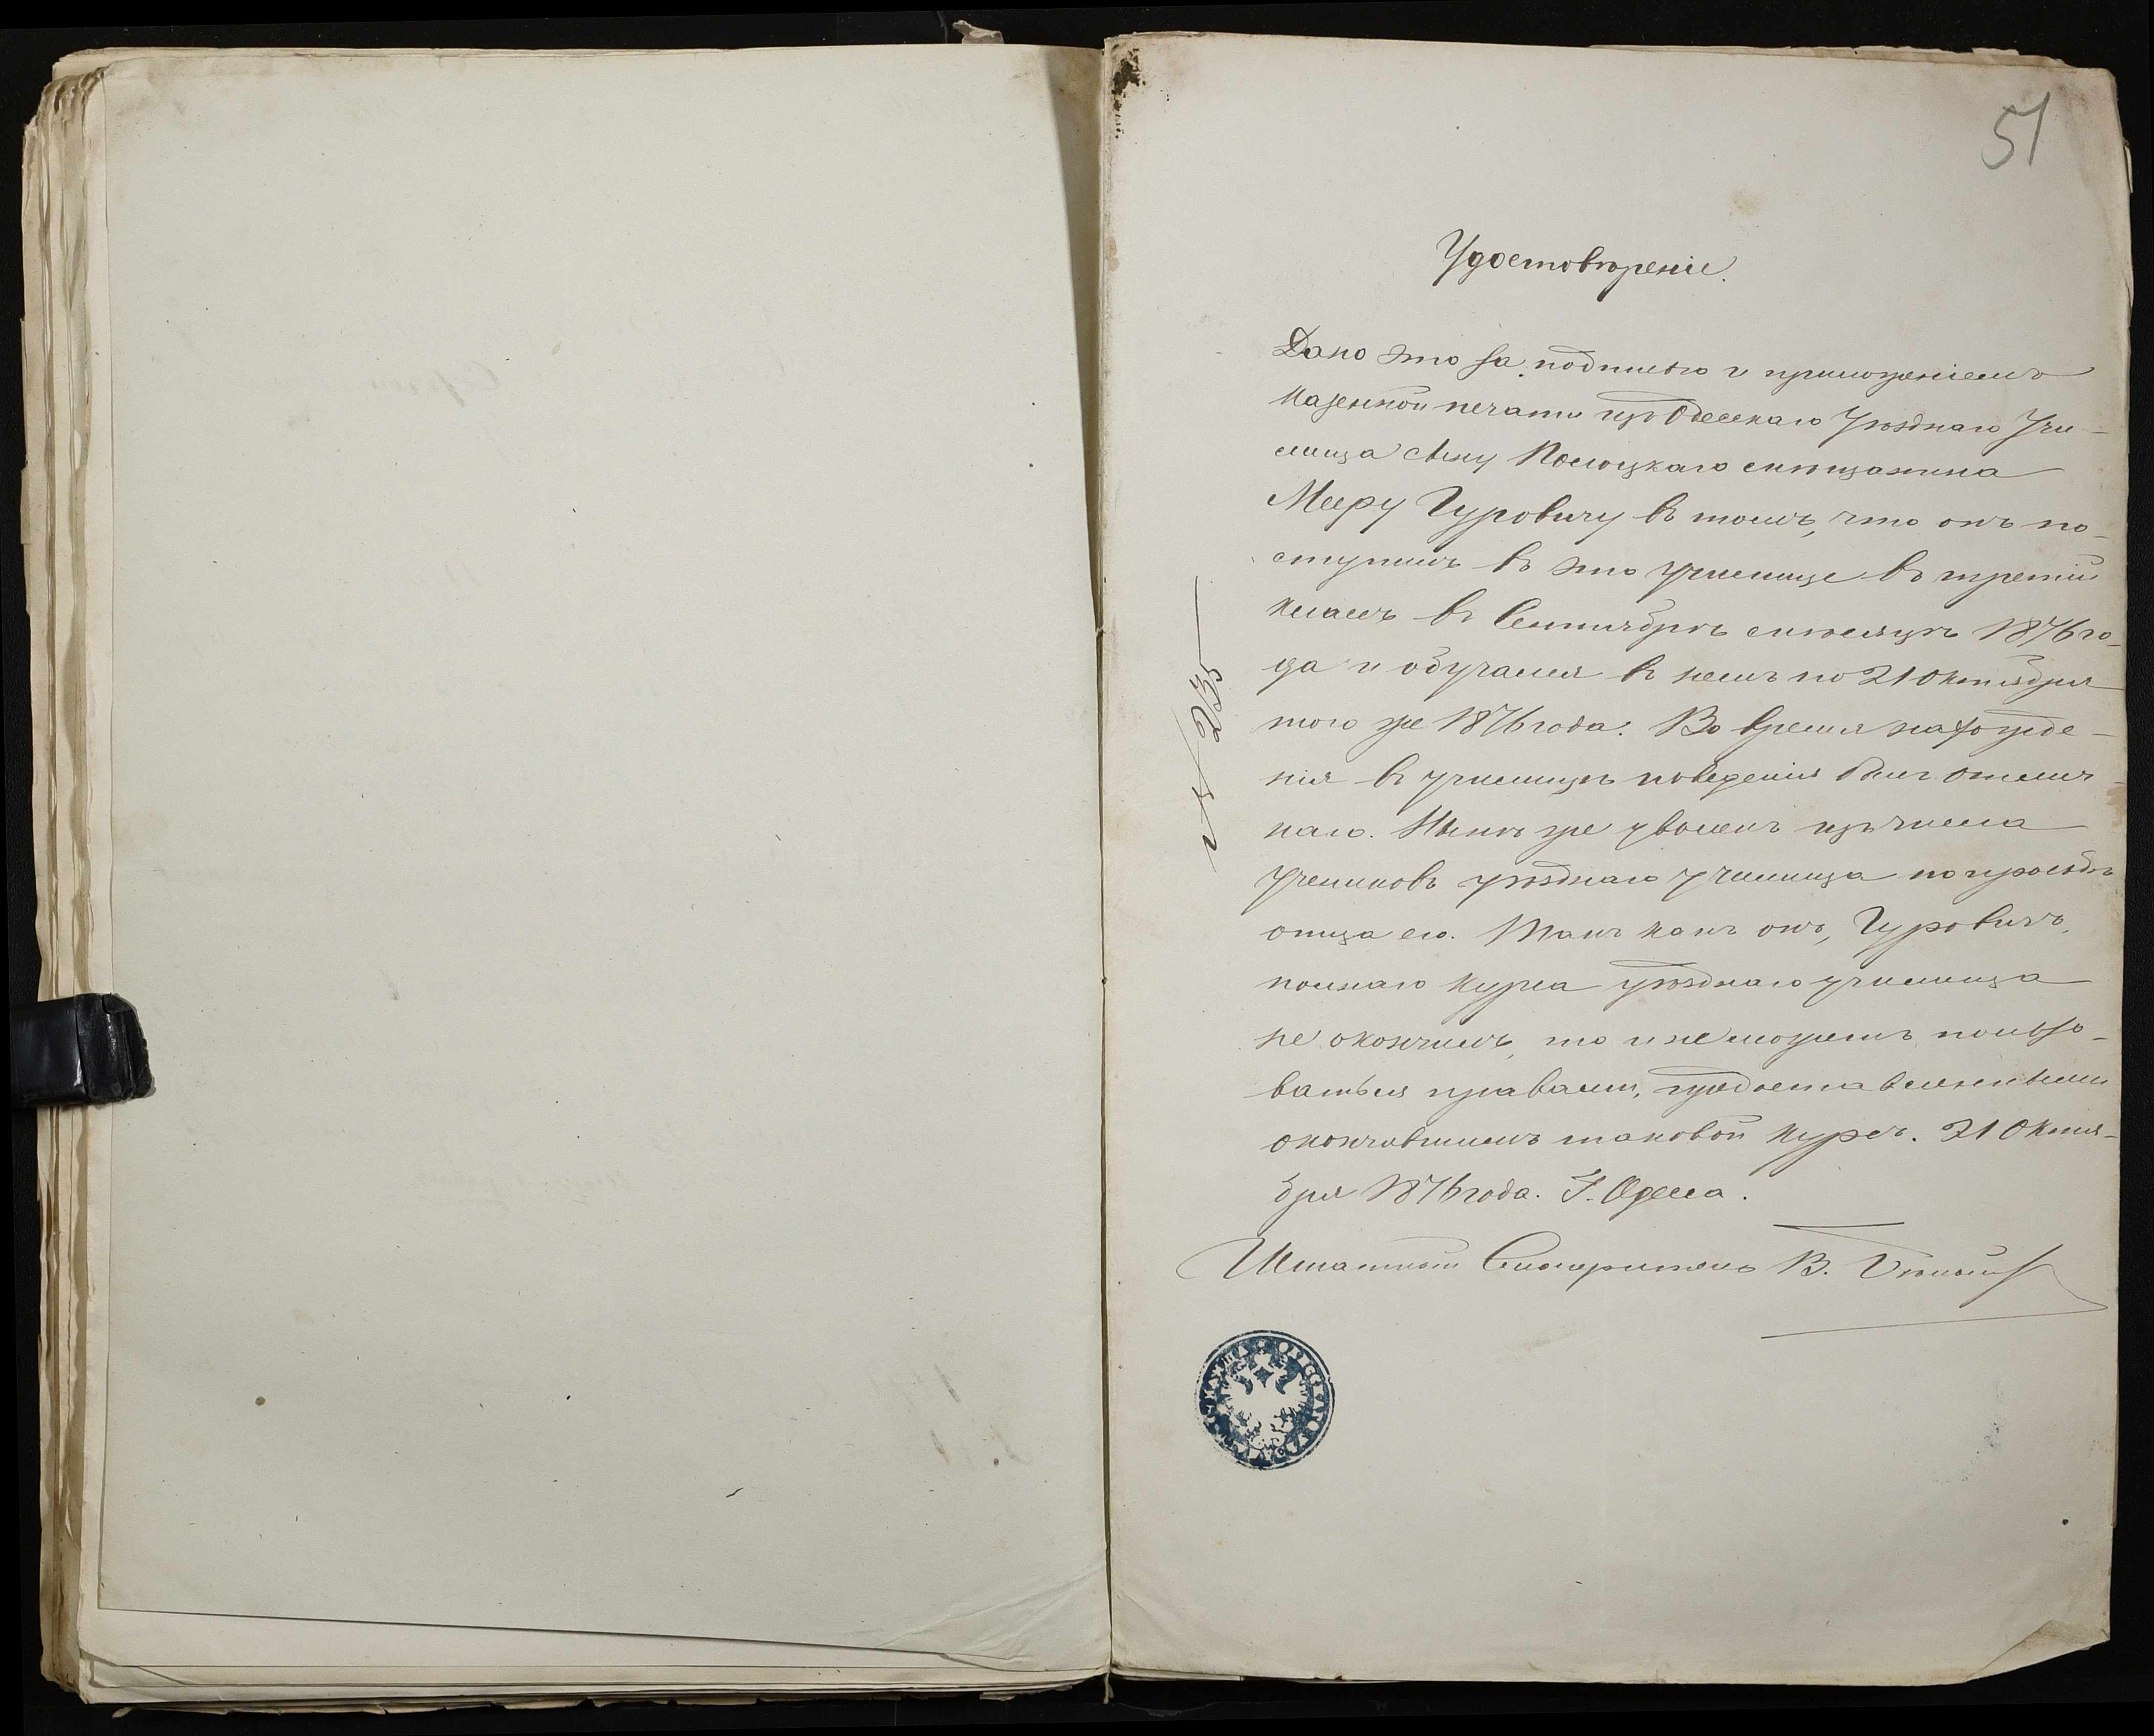 51
Удостовѣреніе.
Дано это за подписью и приложеніемъ
казенной печати изъ Одесскаго Уѣзднаго Учи-
лища сыну Полоцкаго мѣщанина
Мееру Гуровичу въ томъ, что онъ по-
ступилъ въ это училище въ третій
классъ въ Сентябрѣ мѣсяцѣ 1876 го-
да и обучался въ немъ по 21 Октября
того же 1876 года. Во время нахожде-
нія въ училищѣ поведенія былъ отлич-
наго. Нынѣ же уволенъ изъ числа
учениковъ уѣзднаго училища по просьбѣ
отца его. Такъ какъ онъ, Гуровичъ,
полнаго курса уѣзднаго училища
не окончилъ, то и не можетъ пользо-
ваться правами, предоставленными
окончившимъ таковой курсъ. 21 Октя-
бря 1876 года. Г. Одесса.
Штатный Смотритель В.
№ 235